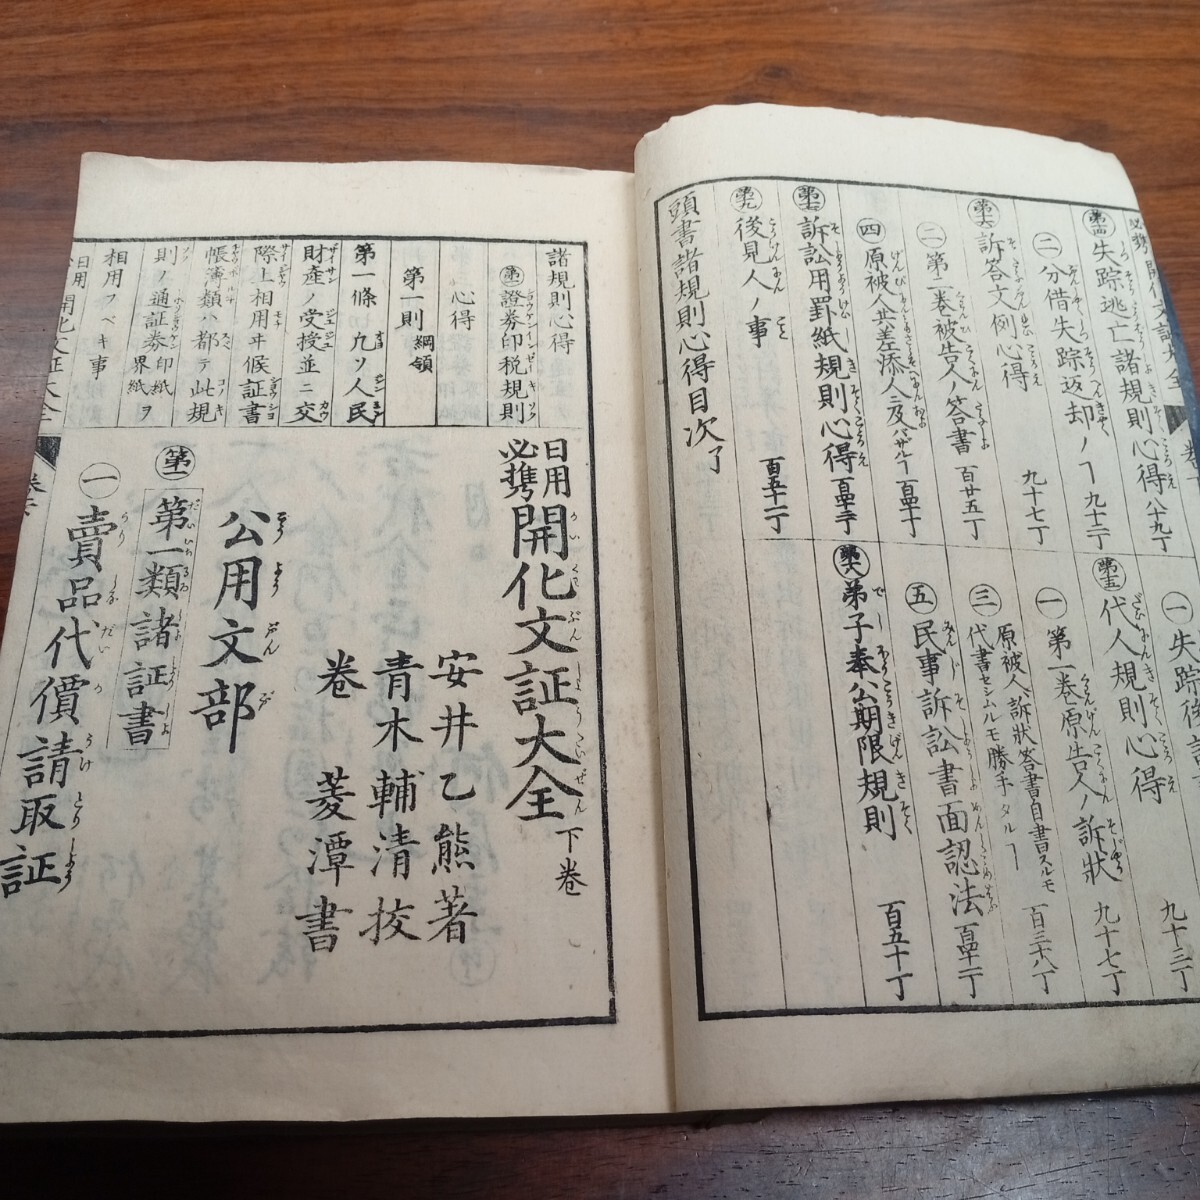 第十四 失踪逃亡諸規則心得 八十九丁
一 失踪
九十三丁
二 分借失踪返却ノヿ 九十三丁
第十五 代人規則心得
九十七丁
第十六 訴答文例心得 九十七丁
一 第一巻原告人ノ訴状
二 第二巻被告人ノ答書 百廿五丁
三 原被人訴状答書自書スルモ
代書セシムルモ勝手タルヿ
百三十八丁
四 原被人共差添人ノ
五 民事訴訟書面認法
第十七 訴訟用罫紙規則心得
第十八 弟子奉公期限規則 百五十丁
第十九 後見人ノ事 百五十一丁
頭書諸規則心得目次了
諸規則心得
證券印税規則
心得
第一則 綱領
第一條 凡ソ人民
財産ノ受授並ニ交
際上相用ヰ候証書
帳簿類ハ都テ此規
則ノ通証券印紙界紙ヲ
相用フベキ事
日用必携 開化文証大全 下巻
安井乙熊著
青木輔清校
巻菱潭書
公用文部
第一 第一類諸証書
一 賣品代價請取証
日用 開化文証大全